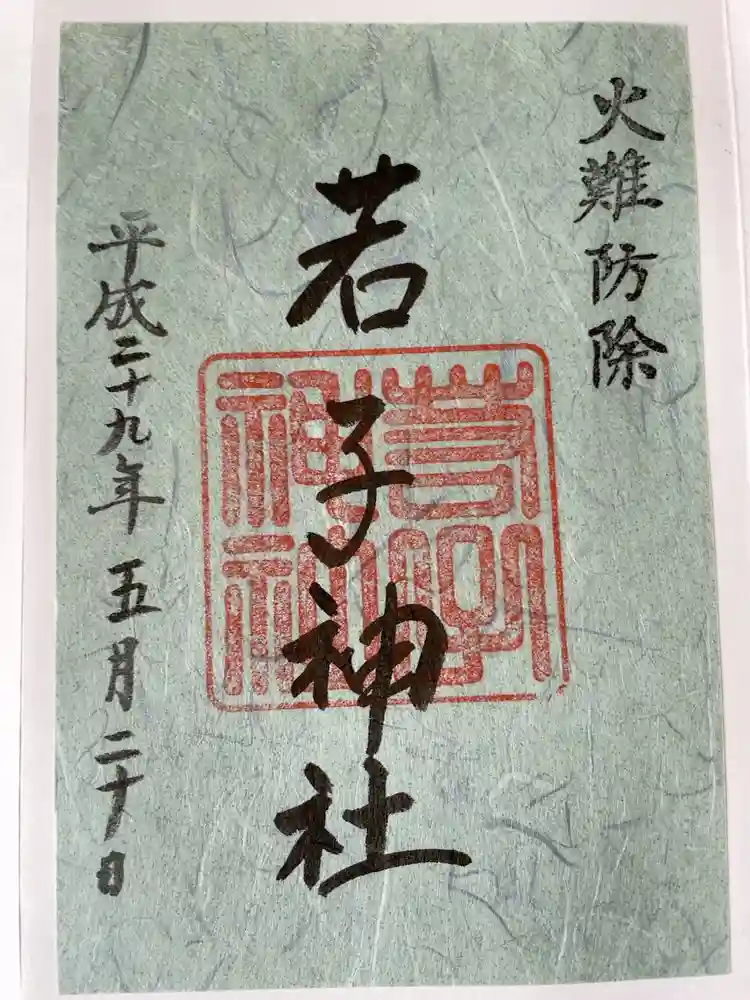 火難防除
若子神社
平成二十九年五月二十日